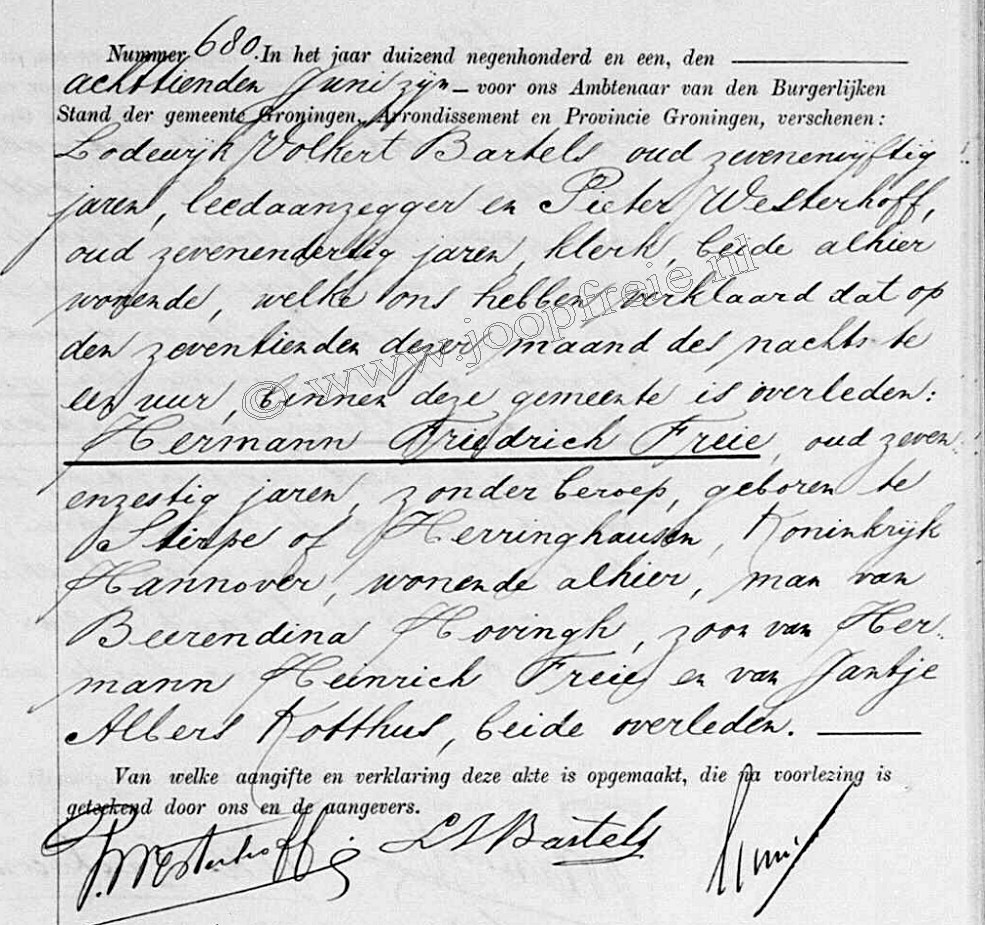 Nummer 680. In het jaar duizend negenhonderd en een, den
achttienden Juni zijn voor ons Ambtenaar van den Burgerlijken
Stand der gemeente Groningen, Arrondissement en Provincie Groningen, verschenen:
Lodewijk Volkert Bartels oud zevenenvijftig
jaren, leedaanzegger en Pieter Westerhoff,
oud zevenendertig jaren, klerk, beide alhier
wonende, welke ons hebben verklaard dat op
den zeventienden dezer maand des nachts te
een uur, binnen deze gemeente is overleden:
Hermann Friedrich Freie, oud zeven
enzestig jaren, zonder beroep, geboren te
Stirpe of Herringhausen, Koninkrijk
Hannover, wonende alhier, man van
Beerendina Hovingh, zoon van Her-
mann Heinrich Freie en van Jantje
Albers Kotthus, beide overleden.
Van welke aangifte en verklaring deze akte is opgemaakt, die na voorlezing is
geteekend door ons en de aangevers.
P. Westerhoff LVBartels
© www.joopfreie.nl